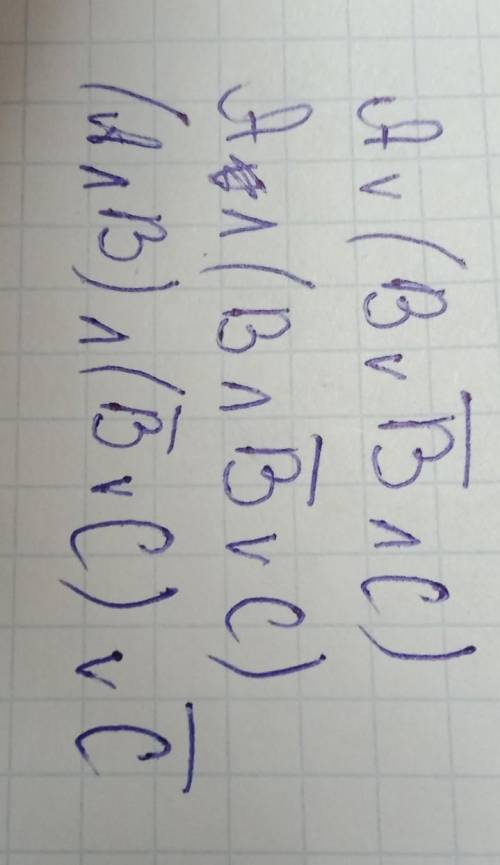 A ∨ (B ∨ B̅ ∧ C)
A ∧ (B ∧ B̅ ∨ C)
(A ∧ B) ∧ (B̅ ∨ C) ∨ C̅